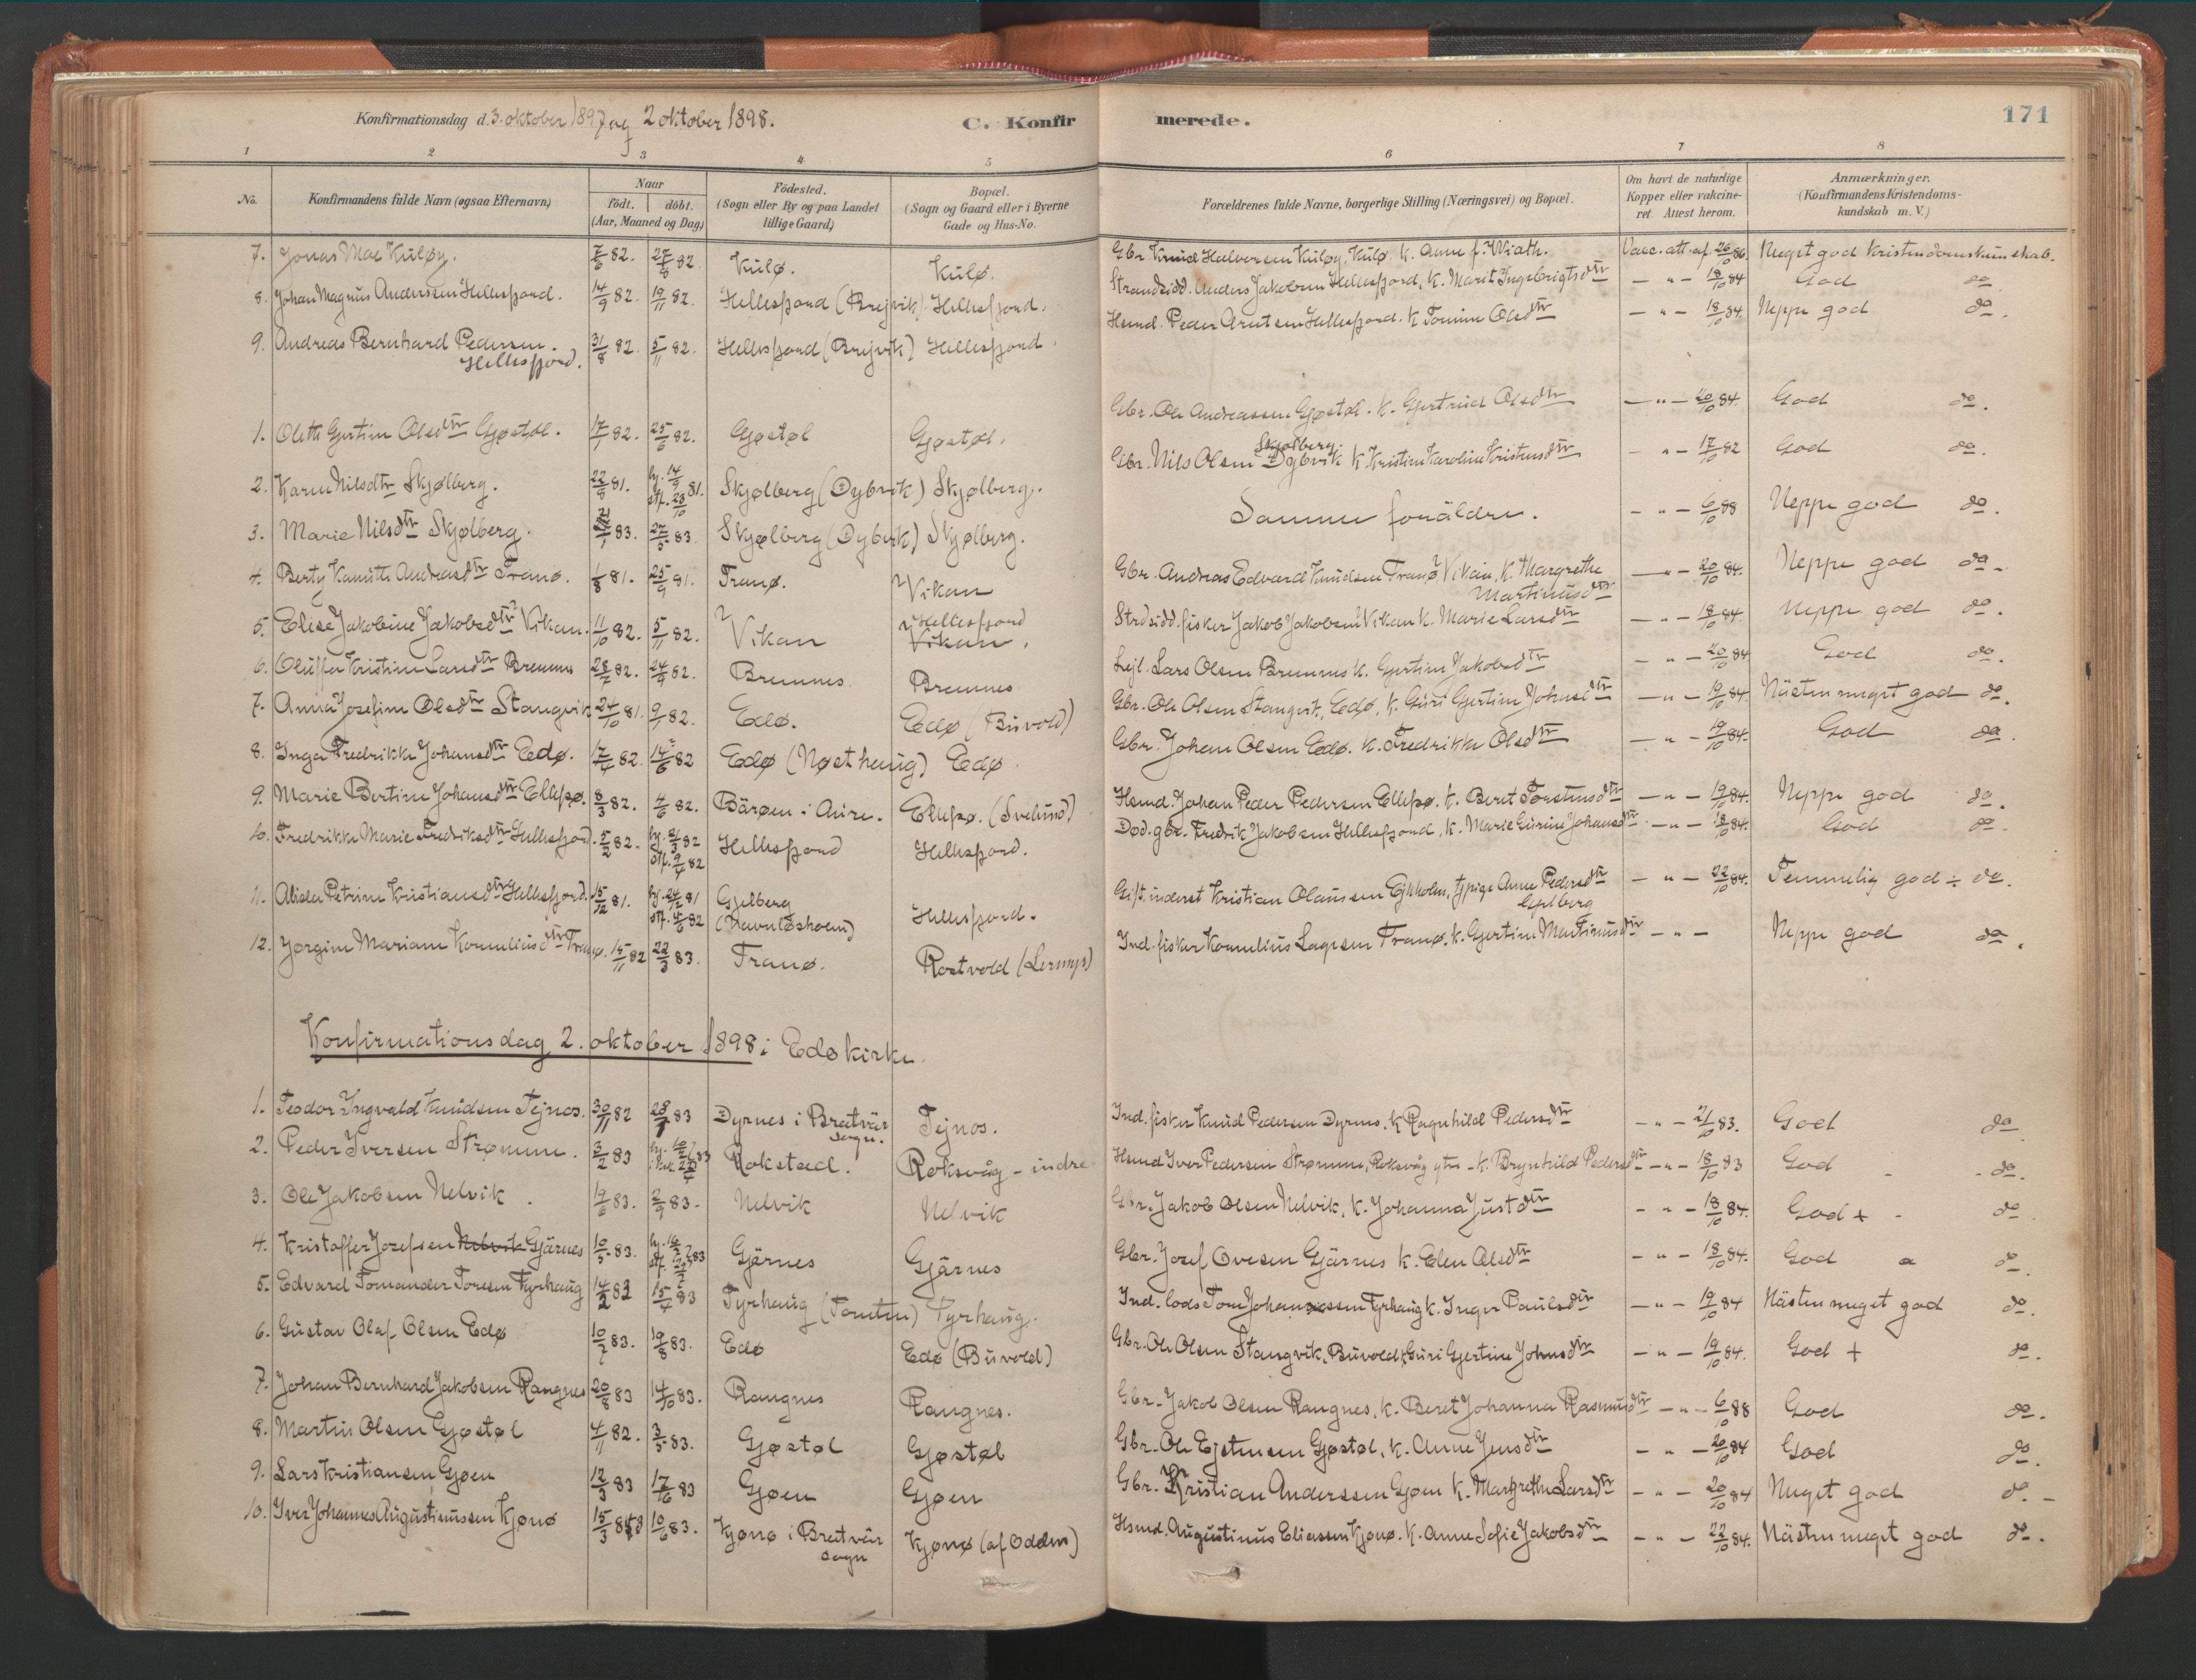 Konfirmationsdag d. 3. oktober 1897 og 2 oktober 1898.
C. Konfirmerede.
171
1 2 3 4 5 6 7 8
No.
Konfirmandens fulde Navn (ogsaa Efternavn)
Naar
födt. döbt.
(Aar, Maaned og Dag)
Födested.
(Sogn eller By og paa Landet
tillige Gaard)
Bopæl.
(Sogn og Gaard eller i Byerne
Gade og Hus-No.
Forældrenes fulde Navne, borgerlige Stilling (Næringsvei) og Bopæl.
Om havt de naturlige
Kopper eller vakcine-
ret. Attest herom.
Anmærkninger.
(Konfirmandens Kristendoms-
kundskab m. V.)
7. Jonas Moe Kuløy. 7/6 82. 27/8 82. Kulø. Kulø. Gbr. Knud Halvorsen Kuløy, Kulø. k. Anne f. Wiath. Vacc. att. af 26/10 86. Meget god kristendomskunskab.
8. Johan Magnus Anderssen Hellesfjord. 14/9 82. 19/11 82. Hellesfjord (Brejvik). Hellesfjord. Strandsidd. Anders Jakobsen Hellesfjord, k. Marit Ingebrigtsdtr — " — 18/10 84 God do.
9. Andreas Bernhard Pedersen
Hellesfjord. 31/8 82. 5/11 82. Hellesfjord (Brejvik) Hellesfjord. Hsmd. Peder Arntsen Hellesfjord. k Tomine Olsdtr — " — 18/10 84. Neppe god do.
1. Olette Gjertine Olsdtr Gjøstøl. 17/1 82. 25/6 82. Gjøstøl Gjøstøl. Gbr. Ole Andreassen Gjøstøl. k. Gjertrud Olsdtr — " — 20/10 84. God do.
2. Karen Nilsdtr Skjølberg. 22/8 81. hj. 14/9 stf. 23/10 81. Skjølberg (Dybvik) Skjølberg. Gbr. Nils Olsen Dybvik Skjølberg. k Kristine Karoline Kristensdtr — " — 17/10 82 God do.
3. Marie Nilsdtr Skjølberg. 83. 27/5 83. Skjølberg (Dybvik) Skjølberg. Samme forældre. — " — 6/10 88 Neppe god do.
4. Berty Kanutte Andreasdtr Tranø. 1/8 81. 25/9 81. Tranø. Vikan Gbr. Andreas Edvard Knudsen Tranø Vikan, k. Margrethe
Martinusdtr — " — 20/10 84. Neppe god do.
5. Elise Jakobine Jakobsdtr Vikan. 11/10 82. 5/11 82. Vikan Hellesfjord
Vikan. Strdsidd. fisker Jakob Jakobsen Vikan k. Marie Larsdtr — " — 18/10 84. Neppe god do.
6. Oluffa Kristine Larsdtr Bremnes 28/7 82. 24/9 82. Bremnes. Bremnes Lejl. Lars Olsen Bremnes k. Gjertine Jakobsdtr — " — 20/10 84 God do.
7. Anna Josefine Olsdtr Stangvik 24/10 81. 9/ 82. Edø. Edø (Buvold) Gbr. Ole Olsen Stangvik, Edø, k. Guri Gjertine Johnsdtr — " — 19/10 84. Nästen meget god do.
8. Inga Fredrikke Johansdtr Edø. 17/4 82. 14/6 82 Edø (Nøsthaug) Edø Gbr. Johan Olsen Edø. k. Fredrikke Olsdtr — " — 19/10 84. God do.
9. Marie Bertine Johansdtr Ellefsø. 8/3 82. 4/6 82. Bärøen i Aure. Ellefsø. (Svelund) Hsmd. Johan Peder Pedersen Ellefsø. k. Beret Torstensdtr — " — 19/10 84. Neppe god do.
10. Fredrikke Marie Fredriksdtr Hellesfjord. 5/2 82. hj. 82 stf. 9/4 82 Hellesfjord Hellesfjord. Död. gbr. Fredrik Jakobsen Hellesfjord, k. Marie Gurine Johansdtr — " — 18/10 84. God do.
11. Alida Petrine Kristiansdtr Hellesfjord. 15/12 81. hj. 24/12 81 stf. 82 Gjelberg
(Navnløsholm) Hellesfjord. Gift. inderst Kristian Olaussen Ejkholm, tjpige Anne Pedersdtr
Gjelberg — " — 22/10 84. Temmelig god ÷ do.
12. Jørgine Mariane Korneliusdtr Tranø. 15/11 82 22/3 83. Tranø. Rostvold (Lermyr) Ind. fisker Kornelius Larsen Tranø. k. Gjertine Martinusdtr — " — Neppe god do.
Konfirmationsdag 2. oktober 1898 i Edø kirke.
1. Teodor Ingvald Knudsen Tejnos. 30/11 82 28/1 83 Dyrnes i Bratvär
sogn. Tejnos. Ind. fisker Knud Pedersen Dyrnes, k Ragnhild Pedersdtr — " — 21/10 83. God do
2. Peder Iversen Strømme. 3/2 83 Rokstad. Roksvåg - indre Hsmd Iver Pedersen Strømme, Roksvåg ytre - k. Brynhild Pedersdtr — " — 18/10 83 God - do.
3. Ole Jakobsen Nelvik. 19/6 83. 2/9 83. Nelvik Nelvik Gbr. Jakob Olsen Nelvik, k. Johanna Justdtr — " — 18/10 84. God + do
4. Kristoffer Josefsen Nelvik Gjärnes 10/5 83. Gjärnes Gjärnes Gbr. Josef Ovesen Gjärnes k. Elen Olsdtr — " — 18/10 84. God do.
5. Edvard Tomander Toresen Tyrhaug 14/2 83 15/4 83 Tyrhaug (Tomten) Tyrhaug. Ind. lods Tom Johanssen Tyrhaug k. Inger Paulsdtr — " — 19/10 84 Nästen meget god do.
6. Gustav Olaf Olsen Edø 10/7 83. 19/8 83. Edø Edø (Buvold) Gbr. Ole Olsen Stangvik, Buvold, k Guri Gjertine Johnsdtr — " — 19/10 84. God + do.
7. Johan Bernhard Jakobsen Rangnes 20/8 83 14/10 83. Rangnes Rangnes. Gbr. Jakob Olsen Rangnes, k. Beret Johanna Rasmusdtr — " — 6/10 88 God do.
8. Martin Olsen Gjøstøl 4/11 82. 3/5 83. Gjøstøl Gjøstøl Gbr. Ole Ejstensen Gjøstøl, k. Anne Jensdtr — " — 20/10 84 God do.
9. Lars Kristiansen Gjøen 12/3 83 17/6 83 Gjøen Gjøen Gbr. Kristian Anderssen Gjøen k. Margrethe Larsdtr — " — 20/10 84 Meget god do. -
10. Iver Johannes Augustinussen Kjønø 15/3 83 10/6 83. Kjønø i Bratvär
sogn Kjønø (af Odden) Hsmd. Augustinus Eliassen Kjønø. k. Anne Sofie Jakobsdtr — " — 22/10 84. Nästen meget god do.